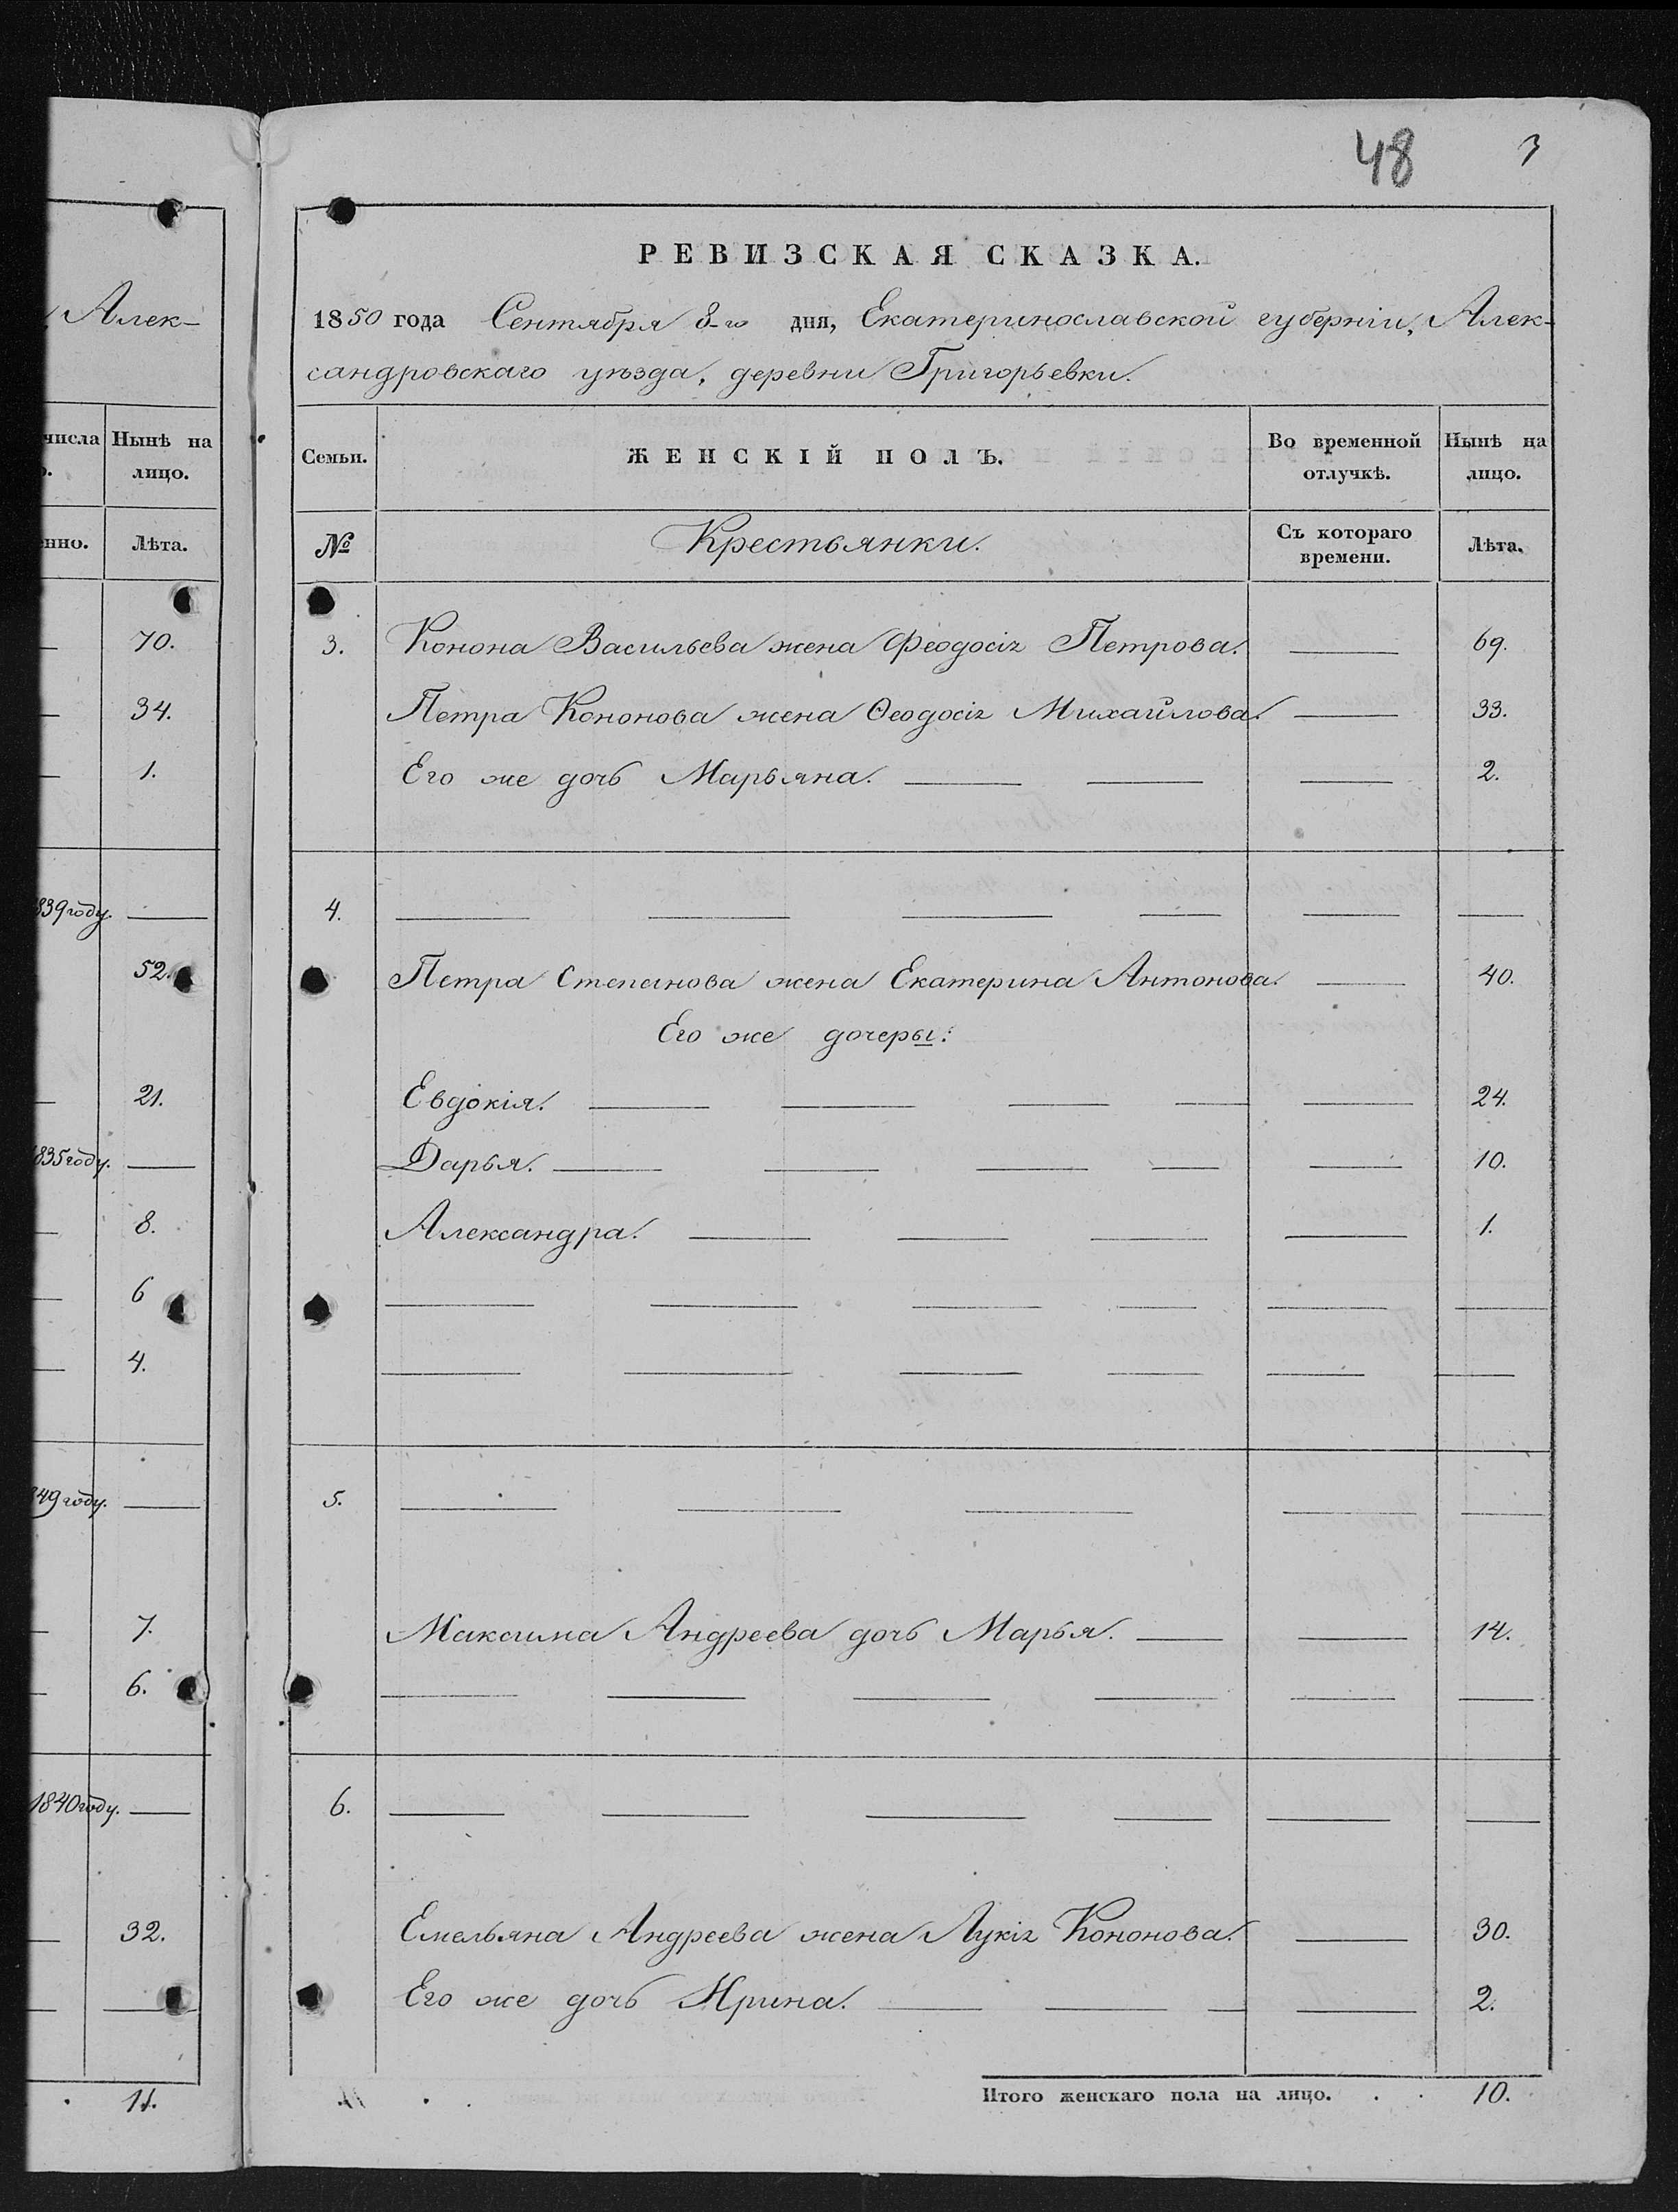 Алек-
числа Нынѣ на
лицо.
нно. Лѣта.
70.
34.
1.
839 году.
52.
21.
835 году.
8.
6
4.
849 году.
7.
6.
1840 году.
32.
11.
48 3
РЕВИЗСКАЯ СКАЗКА.
1850 года Сентября 8-го дня, Екатеринославской губерніи, Алек-
сандровскаго уѣзда, деревни Григорьевки.
Семьи. ЖЕНСКІЙ ПОЛЪ. Во временной отлучкѣ. Нынѣ на лицо.
№ Крестьянки. Съ котораго времени. Лѣта.
3. Конона Васильева жена Феодосія Петрова. — 69.
Петра Кононова жена Ѳеодосія Михайлова. — 33.
Его же дочь Марьяна. — — — 2.
4. — — — — — —
Петра Степанова жена Екатерина Антонова. — 40.
Его же дочеры:
Евдокія. — — — — — 24.
Дарья. — — — — — 10.
Александра. — — — — 1.
— — — — — —
— — — — — —
5. — — — — —
Максима Андреева дочь Марья. — — 14.
— — — — — —
6. — — — — — —
Емельяна Андреева жена Лукія Кононова. — 30.
Его же дочь Ирина. — — — — 2.
Итого женскаго пола на лицо. . . 10.